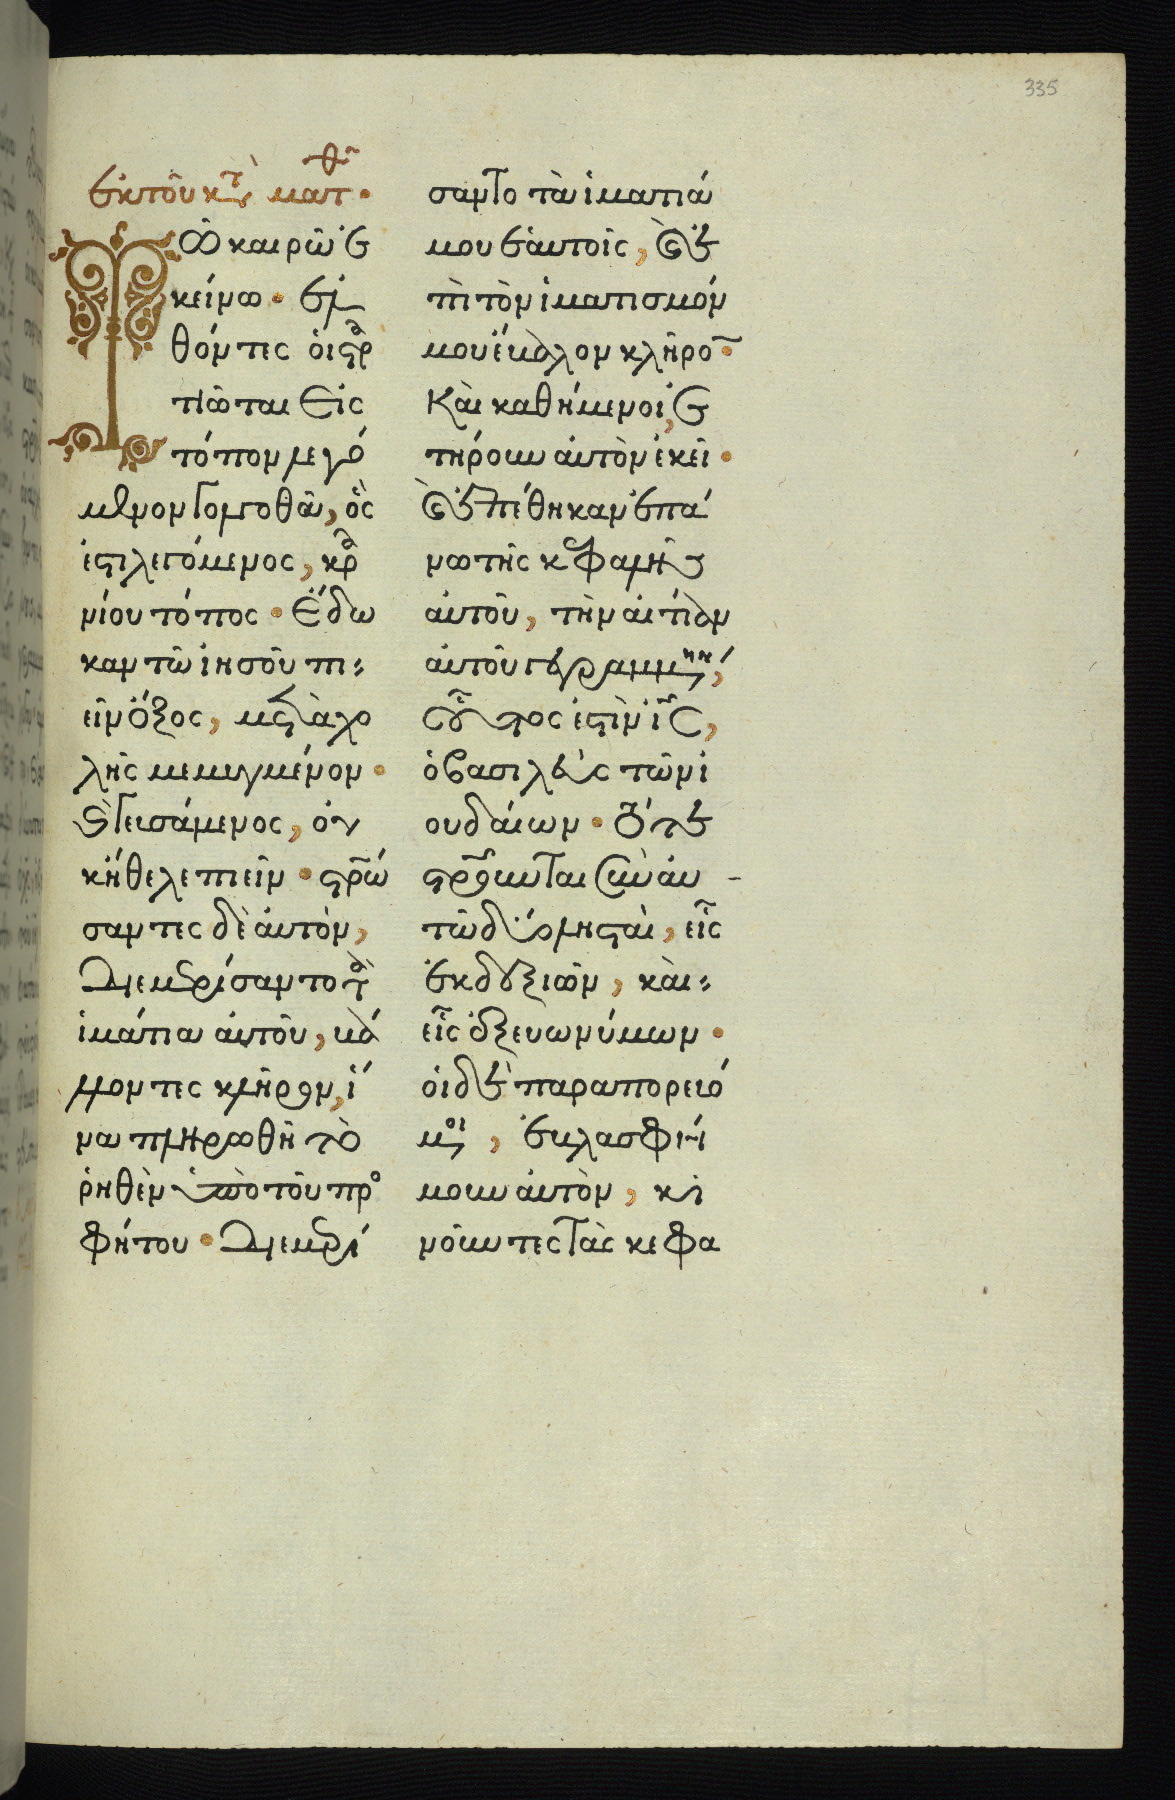 335
ἐκ τοῦ κατὰ ματθ·
Τῶ καιρῶ ἐ
κείνω· ἐλ
θόντες οἱ στρα
τιῶται εἰς
τόπον λεγό
μενον γολγοθᾶ, ὅς
ἐστι λεγόμενος, κρα
νίου τόπος· ἔδω
καν τῶ ἰησοῦ πι
εῖν ὄξος, μετὰ χο
λῆς μεμιγμένον·
καὶ γευσάμενος, οὐ
κ ἤθελε πιεῖν· σταυρώ
σαντες δὲ αὐτὸν,
διεμερίσαντο τὰ
ἱμάτια αὐτοῦ, βά
λλοντες κλῆρον, ἵ
να πληρωθῆ τὸ
ῥηθὲν ὑπὸ τοῦ προ
φήτου· διεμερί
σαντο τὰ ἱμάτιά
μου ἑαυτοῖς, καὶ ἐ
πὶ τὸν ἱματισμόν
μου ἔβαλον κλῆρον·
Καὶ καθήμενοι, ἐ
τήρουν αὐτὸν ἐκεῖ·
καὶ ἐπέθηκαν ἐπά
νω τῆς κεφαλῆς
αὐτοῦ, τὴν αἰτίαν
αὐτοῦ γεγραμμένην,
οὗτός ἐστιν ἰς,
ὁ βασιλεὺς τῶν ἰ
ουδαίων· τότε
σταυροῦνται σὺν αὐ
τῶ δύο λησταὶ, εἷς
ἐκ δεξιῶν, καὶ
εἷς ἐξ εὐωνύμων·
οἱ δὲ παραπορευό
μενοι, ἐβλασφή
μουν αὐτὸν, κι
νοῦντες τὰς κεφα